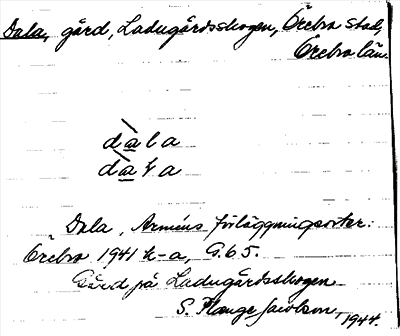 Dala, gård, Ladugårdsskogen, Örebro stad,
Örebro län.
dala
data
Dala, Arméns förläggningsorter:
Örebro 1941 h-a, G.65.
Gård på Ladugårdsskogen
S. Plange Jacobson, 1944